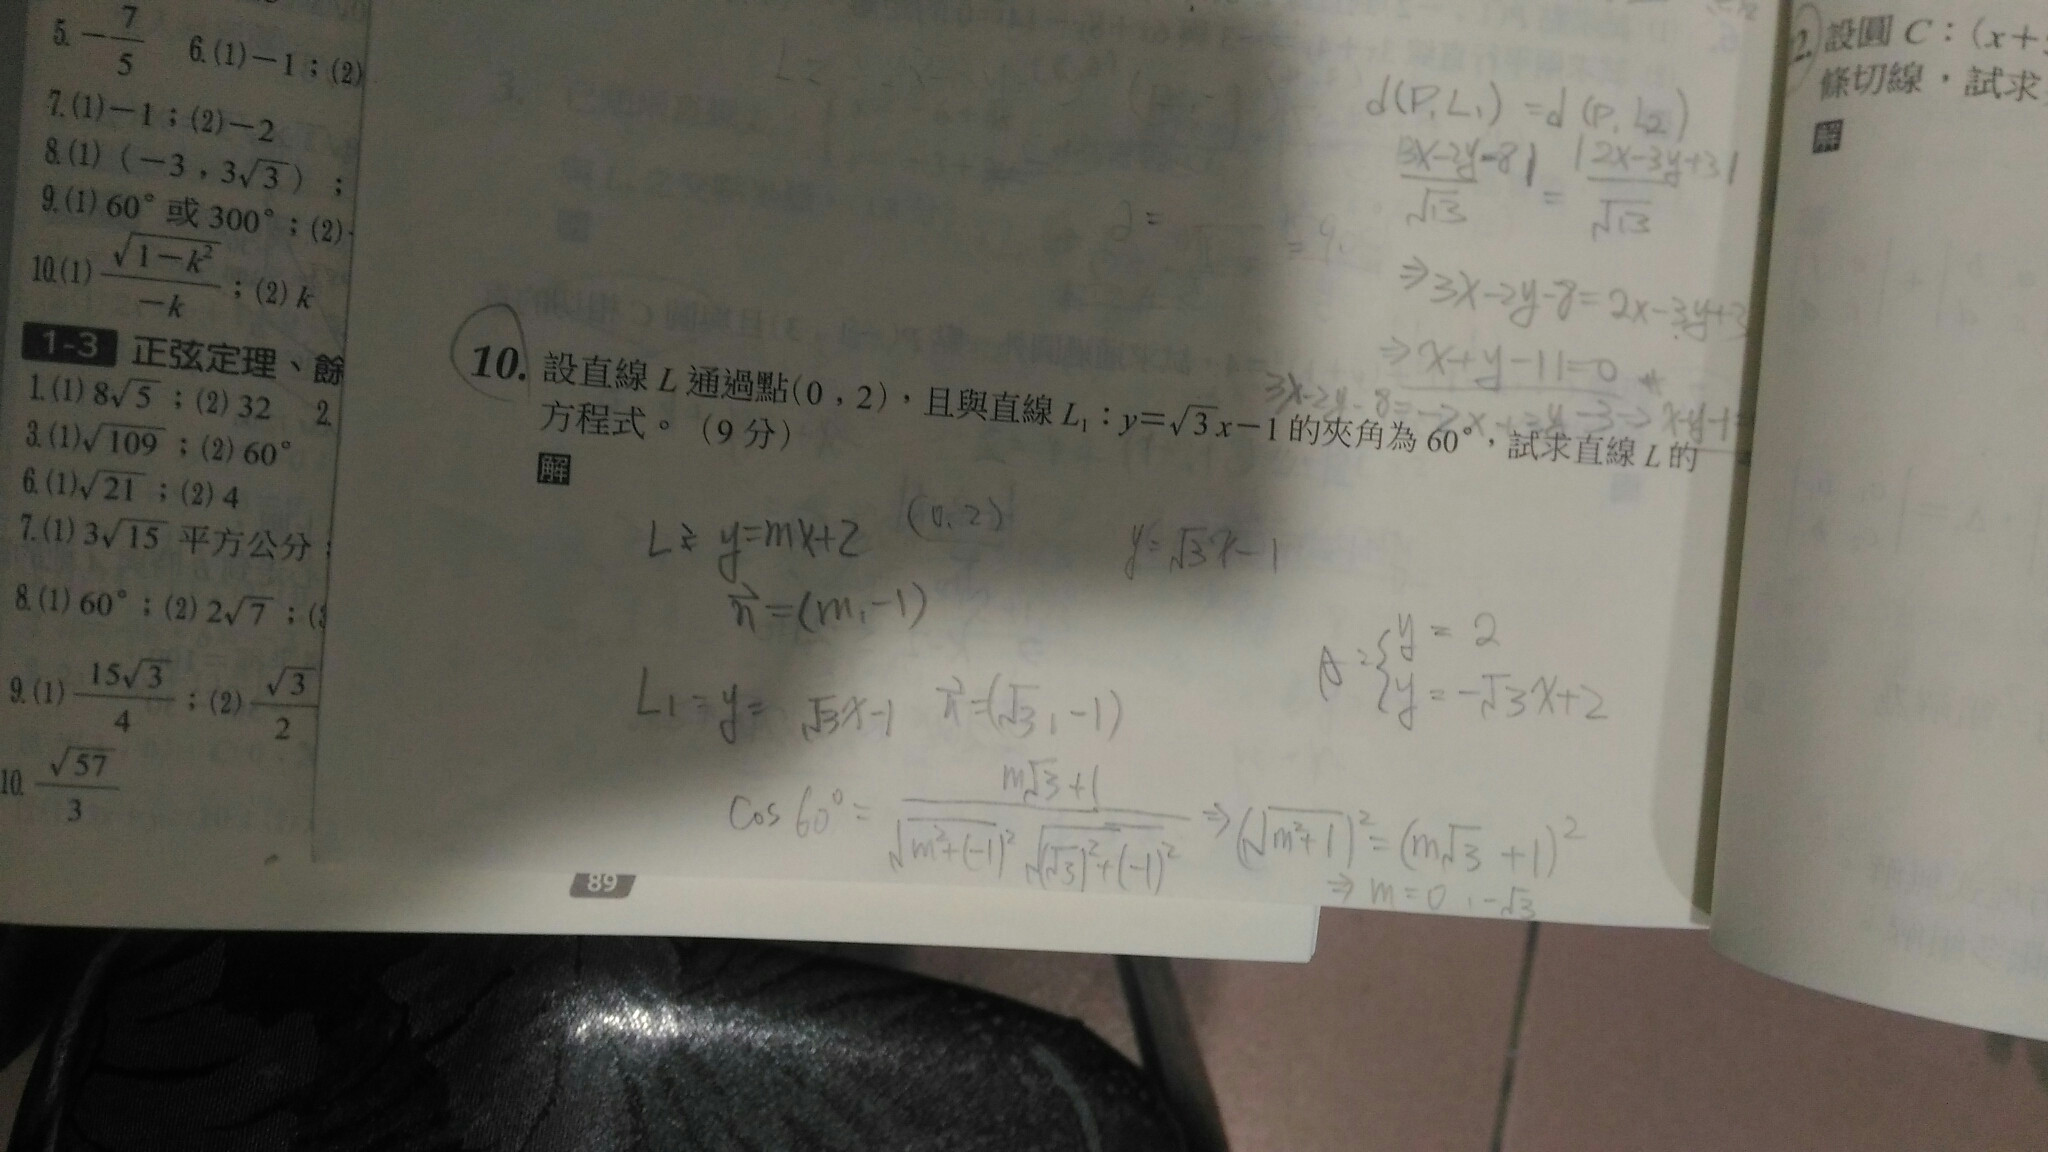 5. −7/5 6.(1)−1；(2)
7.(1)−1；(2)−2
8.(1)（−3，3√3）；
9.(1)60°或300°；(2)
10.(1) √(1−k²)/−k；(2)k
1-3 正弦定理、餘
1.(1)8√5；(2)32 2.
3.(1)√109；(2)60°
6.(1)√21；(2)4
7.(1)3√15 平方公分；
8.(1)60°；(2)2√7；(3
9.(1) 15√3/4；(2) √3/2
10. √57/3
d(P,L₁) = d(P,L₂)
|3x-2y-8|/√13 = |2x-3y+3|/√13
⇒3x-2y-8=2x-3y+3
⇒x+y-11=0
10. 設直線 L 通過點(0，2)，且與直線 L₁：y=√3x−1 的夾角為 60°，試求直線 L 的
方程式。（9 分）
解
L: y=mx+2 (0,2) y=√3x-1
n⃗=(m,-1)
L₁: y= √3x-1 n⃗=(√3,-1)
A: { y=2
y=-√3x+2
cos 60°= (m√3+1)/(√(m²+(-1)²) √((√3)²+(-1)²)) ⇒ (√(m²+1))²=(m√3+1)²
⇒ m=0,-√3
89
2. 設圓 C：(x+
條切線，試求
解